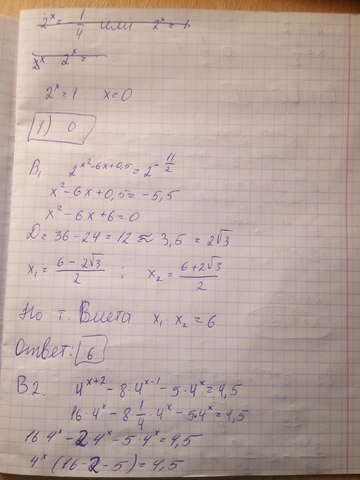 2^x = 1/4 или 2^x = 1
x^x 2^x =
2^x = 1 x = 0
1) 0
B1 2^(x²-6x+0,5) = 2^(-11/2)
x² - 6x + 0,5 = -5,5
x² - 6x + 6 = 0
D = 36 - 24 = 12 ≈ 3,5 = 2√3
x₁ = (6 - 2√3)/2 ; x₂ = (6 + 2√3)/2
Но т. Виета x₁ x₂ = 6
Ответ: 6
B2. 4^(x+2) - 8·4^(x-1) - 5·4^x = 4,5
16·4^x - 8·1/4·4^x - 5·4^x = 4,5
16·4^x - 2·4^x - 5·4^x = 4,5
4^x (16 - 2 - 5) = 4,5